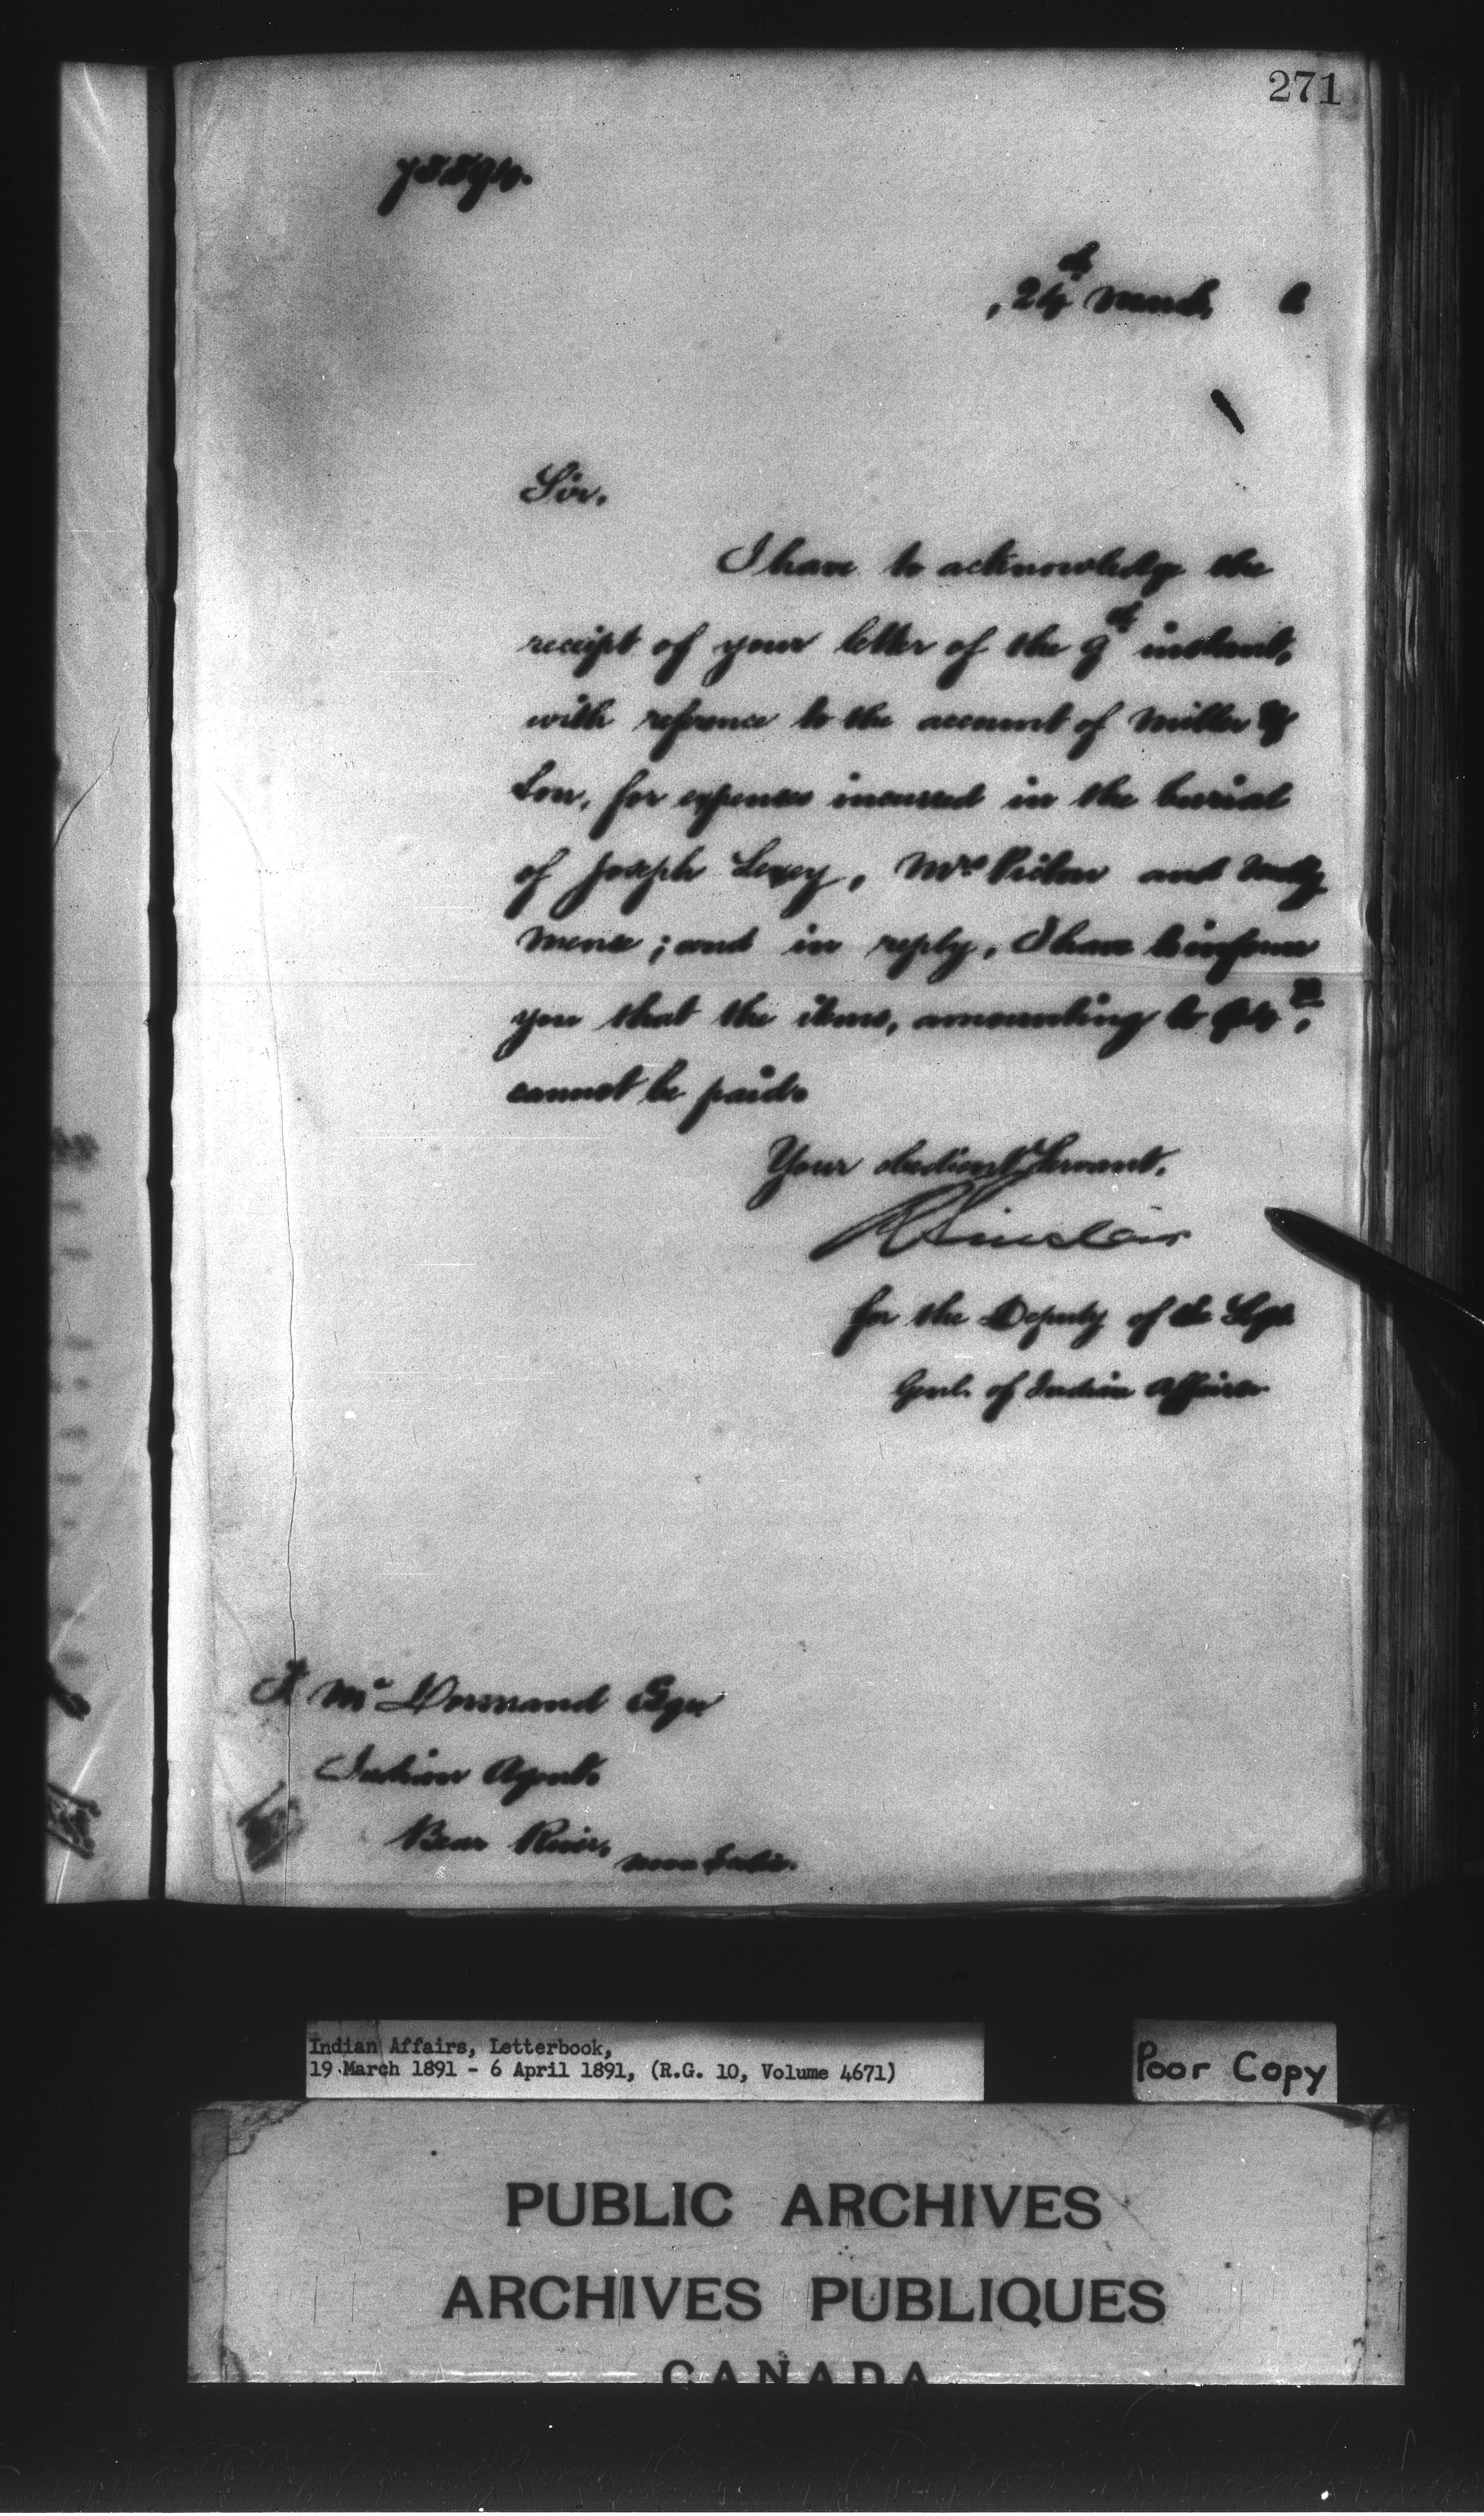 271
24th March
Sir,
I have to acknowledge the
receipt of your letter of the 9th instant,
with reference to the account of Miller &
Son, for expenses incurred in the burial
of Joseph Lexey, Mrs Pictou and
; and in reply, I have to inform
you that the items, amounting to
cannot be paid.
Your obedient Servant,
R Sinclair
for the Deputy of the Supt
Genl. of Indian Affairs
F Mc Dormand Esqr
Indian Agent
Bear River, Nova Scotia.
Indian Affairs, Letterbook,
19 March 1891 - 6 April 1891, (R.G. 10, Volume 4671)
Poor Copy
PUBLIC ARCHIVES
ARCHIVES PUBLIQUES
CANADA